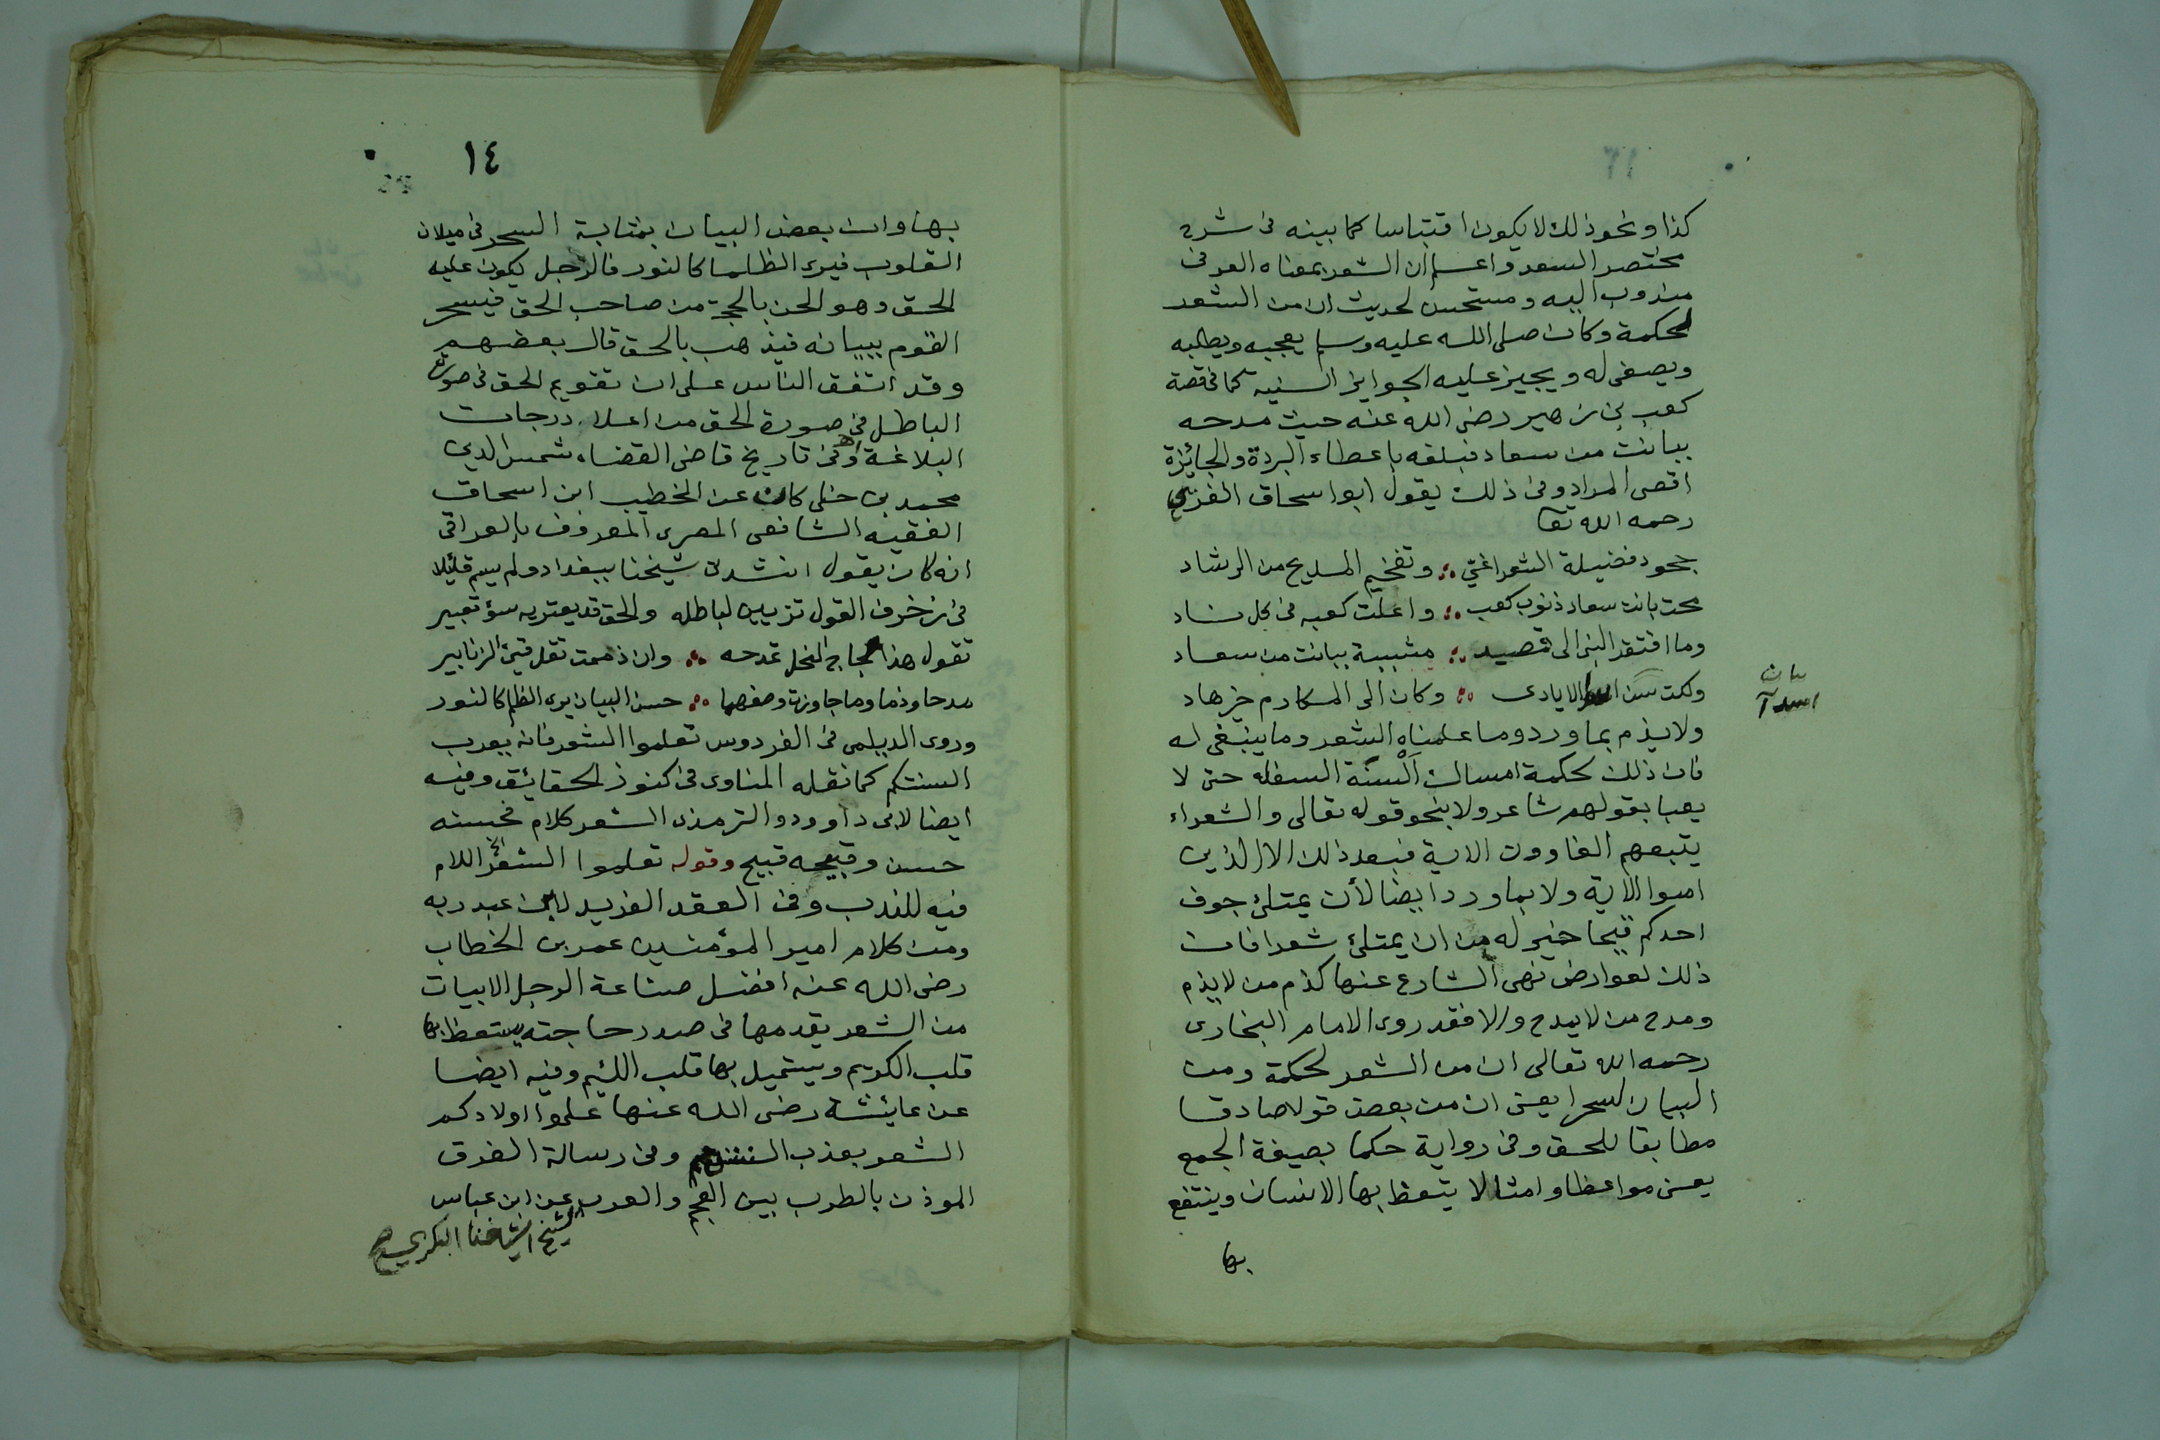 كذا ونحو ذلك لا يكون اقتباسا كما بينه فى شرح
مختصر السعد واعلم ان الشعر بمعناه العرفى
مندوب اليه ومستحسن لحديث ان من الشعر
لحكمة وكان صلى الله عليه وسلم يعجبه ويطلبه
ويصغى له ويجيز عليه الجوايز السنية كما فى قصة
كعب بن زهير رضى الله عنه حيث مدحه
ببانت من سعاد فبلغه باعطاء البردة والجائزة
اقصى المراد وفى ذلك يقول ابو اسحاق الغزى
رحمه الله تعا
جحود فضيلة الشعر اغتى وتفخيم المديح من الرشاد
محت بانت سعاد ذنوب كعب واعلت كعبه فى كل ناد
وما افتقر النبى الى قصيد مشببة ببانت من سعاد
ولكن سن الايادى وكان الى المكارم خير هاد
بيان
اسدآ
ولا يذم بما ورد وما علمناه الشعر وما ينبغى له
فان ذلك لحكمة امساك السنة السفله حتى لا
يعبا بقولهم شاعر ولا بنحو قوله تعالى والشعراء
يتبعهم الغاوون الاية فبعد ذلك الا الذين
امنوا الاية ولا بما ورد ايضا لأن يمتلئ جوف
احدكم قيحا خير له من ان يمتلئ شعرا فان
ذلك لعوارض نهى الشارع عنها كذم من لا يذم
ومدح من لا يمدح والا فقد روى الامام البخارى
رحمه الله تعالى ان من الشعر لحكمة ومن
البيان لسحرا يعنى ان من بعضه قولا صادقا
مطابقا للحق وفى رواية حكما بصيغة الجمع
يعنى مواعظا وامثالا يتعظ بها الانسان وينتفع
بها
١٤
بها وان بعض البيان بمثابة السحر فى ميلان
القلوب فيرى الظلما كالنور فالرجل يكون عليه
الحق وهو الحن بالحجج من صاحب الحق فيسحر
القوم ببيانه فيذهب بالحق قال بعضهم
وقد اتفق الناس على ان تقويم الحق فى صورة
الباطل فى صورة الحق من اعلا درجات
البلاغة اهـ وفى تاريخ قاضى القضاه شمس الدين
محمد بن خلكان عن الخطيب ابن اسحاق
الفقيه الشافعى المصرى المعروف بالعراقى
انه كان يقول انشدنى شيخنا ببغداد ولم يسم قائلا
فى زخرف القول تزيين لباطله والحق قد يعتريه سؤ تعبير
تقول هذا مجاج النحل تمدحه وان ذممت تقل قيئ الزنابير
مدحا وذما وما جاوزت وصفهما حسن البيان يرى الظلم كالنور
وروى الديلمى فى الفردوس تعلموا الشعر فانه يعرب
السنتكم كما نقله المناوى فى كنوز الحقائق وفيه
ايضا لابى داوود والترمذى الشعر كلام فحسنه
حسن وقبيحه قبيح وقوله تعلموا الشعر الخ اللام
فيه للندب وفى العقد الفريد لابن عبد ربه
ومن كلام امير المؤمنين عمر بن الخطاب
رضى الله عنه افضل صناعة الرجل الابيات
من الشعر يقدمها فى صدر حاجته يستعطف بها
قلب الكريم ويستميل بها قلب اللئيم وفيه ايضا
عن عايشة رضى الله عنها علموا اولادكم
الشعر يعذب وفى رسالة الفرق
الموذن بالطرب بين العجم والعرب عن ابن عباس
لشيخ اشياخنا البكرى